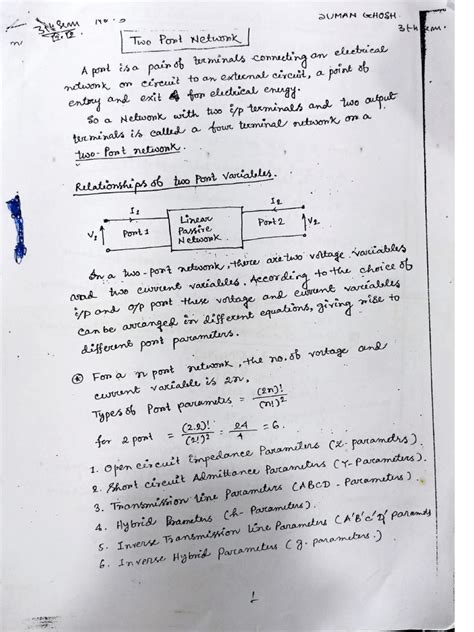 3rd Sem
JUMAN GHOSH
3rd Sem.
Two Port Network
A port is a pair of terminals connecting an electrical
network or circuit to an external circuit, a point of
entry and exit for electrical energy.
So a Network with two i/p terminals and two output
terminals is called a four terminal network or a
two-Port network.
Relationships of two Port Variables.
I1 I2
V1 Port 1 Linear Passive Network Port 2 V2
In a two-port network, there are two voltage variables
and two current variables. According to the choice of
i/p and o/p port these voltage and current variables
can be arranged in different equations, giving rise to
different port parameters.
For a n port network, the no. of voltage and
current variable is 2n.
Types of Port parameters = (2n)! / (n!)²
for 2 port = (2.2)! / (2!)² = 24 / 4 = 6.
1. Open circuit impedance Parameters (Z-parametrs).
2. Short circuit Admittance Parameters (Y-Parameters).
3. Transmission line Parameters (ABCD - Parameters).
4. Hybrid Parameters (h-Parameters).
5. Inverse Transmission line Parameters (A'B'C'D' parameters
6. Inverse Hybrid Parameters (g. parameters.)
1